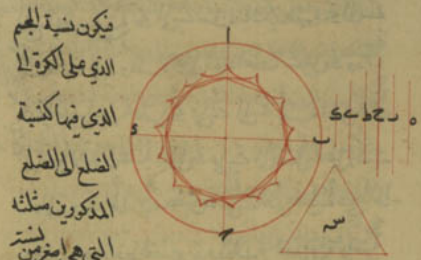 فيكون نسبة المجسم
الذي على الكرة الى
الذي فيها كنسبة
الضلع الى الضلع
المذكورين مثلثه
التي هي اصغر من
ا
ب
ح
ء
س